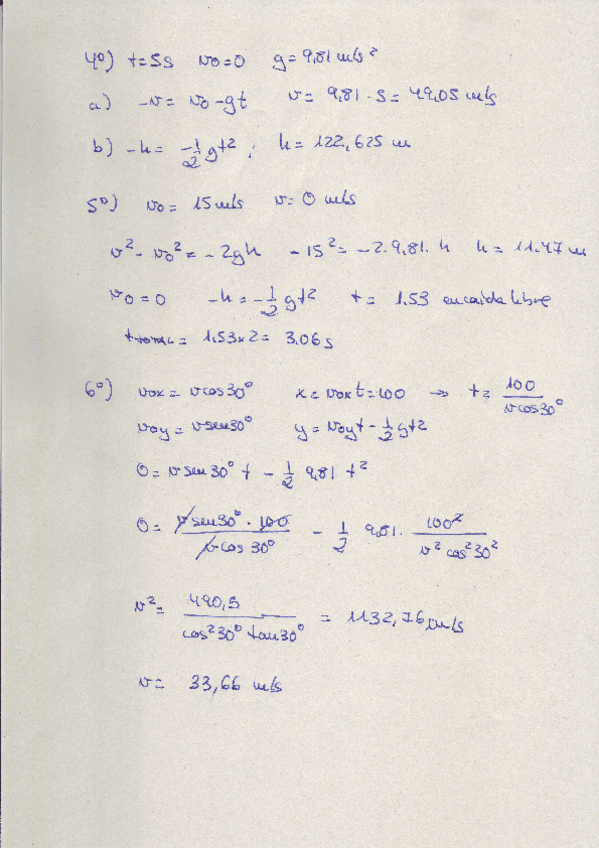 4º) t=5s v0=0 g=9,81 m/s²
a) -v= v0-gt v= 9,81·5= 49,05 m/s
b) -h= -1/2 gt²; h= 122,625 m
5º) v0= 15 m/s v= 0 m/s
v²-v0²= -2gh -15²= -2·9,81·h h= 11.47 m
v0=0 -h= -1/2 gt² t= 1.53 en caida libre
tTOTAL= 1,53x2= 3.06s
6º) vox= vcos30º x= voxt=100 → t= 100/vcos30º
voy= vsen30º y= voyt-1/2 gt2
0= v sen30º t - 1/2 9,81 t²
0= vsen30º·100/vcos30º - 1/2 9,81· 100²/v²cos²30²
v²= 490,5/cos²30º tan30º = 1132,76 m/s
v= 33,66 m/s